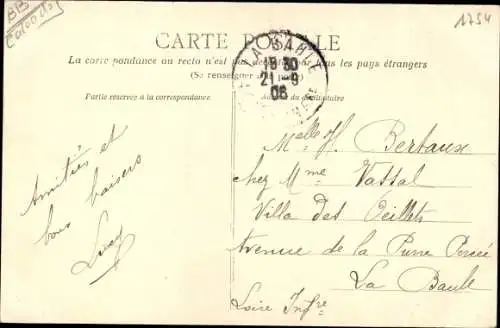 1754
CARTE POSTALE
La carte pondance au recto n'est pas par tous les pays étrangers
(Se renseigner à la poste)
Partie réservée à la correspondance
18 30
21-9
06
Amitiés et
bons baisers
Lucy
Melle H. Bertaux
chez Mme Vassal
Villa des Oeillets
Avenue de la Pierre Percée
La Baule
Loire Infre